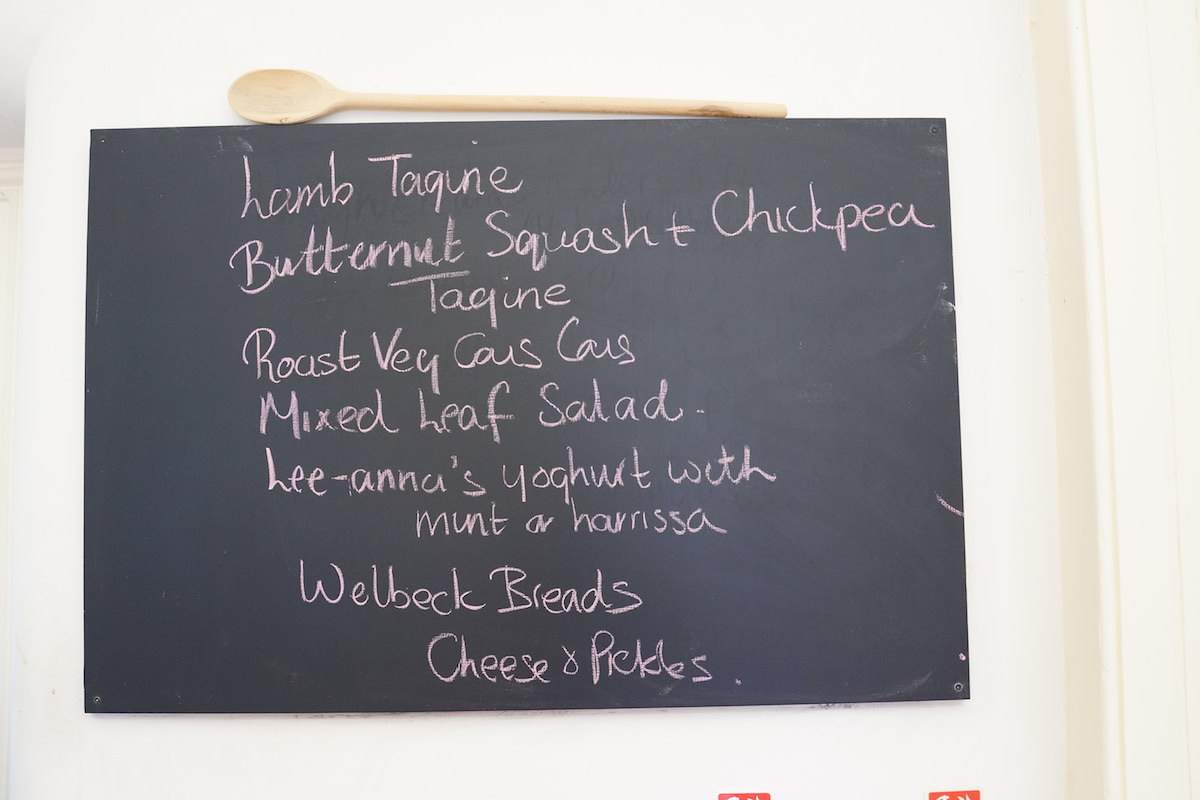 Lamb Tagine
Butternut Squash + Chickpea
Tagine
Roast Veg Cous Cous
Mixed Leaf Salad.
Lee-anna's yoghurt with
mint or harrissa
Welbeck Breads
Cheese & Pickles.